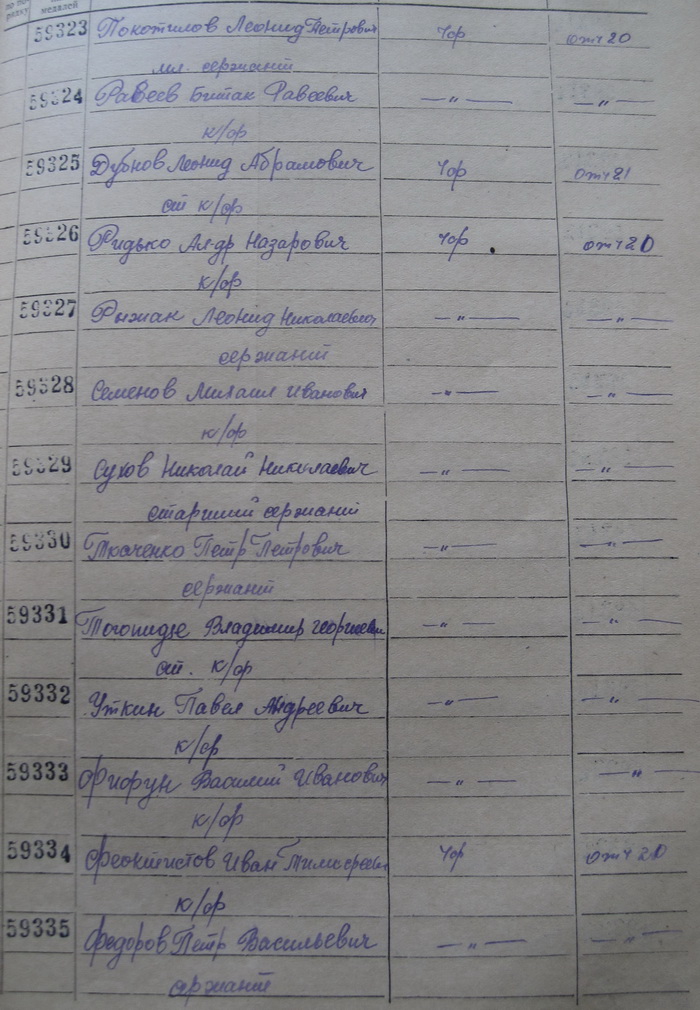 медалей
59323 Покотилов Леонид Петрович Чор отч 20
мл. сержант
59324 Равеев Битак Равеевич —„— —„—
к/ф
59325 Дубнов Леонид Абрамович Чор отч 21
ст к/ф
59326 Ридько Ал-др Назарович Чор отч 20
к/ф
59327 Рыжак Леонид Николаевич —„— —„—
сержант
59328 Семенов Михаил Иванович —„— —„—
к/ф
59329 Сухов Николай Николаевич —„— —„—
старший сержант
59330 Ткаченко Петр Петрович —„— —„—
сержант
59331 Тогонидзе Владимир Георгиевич —„— —„—
ст. к/ф
59332 Уткин Павел Андреевич —„— —„—
к/ф
59333 Фифрун Василий Иванович —„— —„—
к/ф
59334 Феоктистов Иван Чор отч 20
к/ф
59335 Федоров Петр Васильевич —„— —„—
сержант